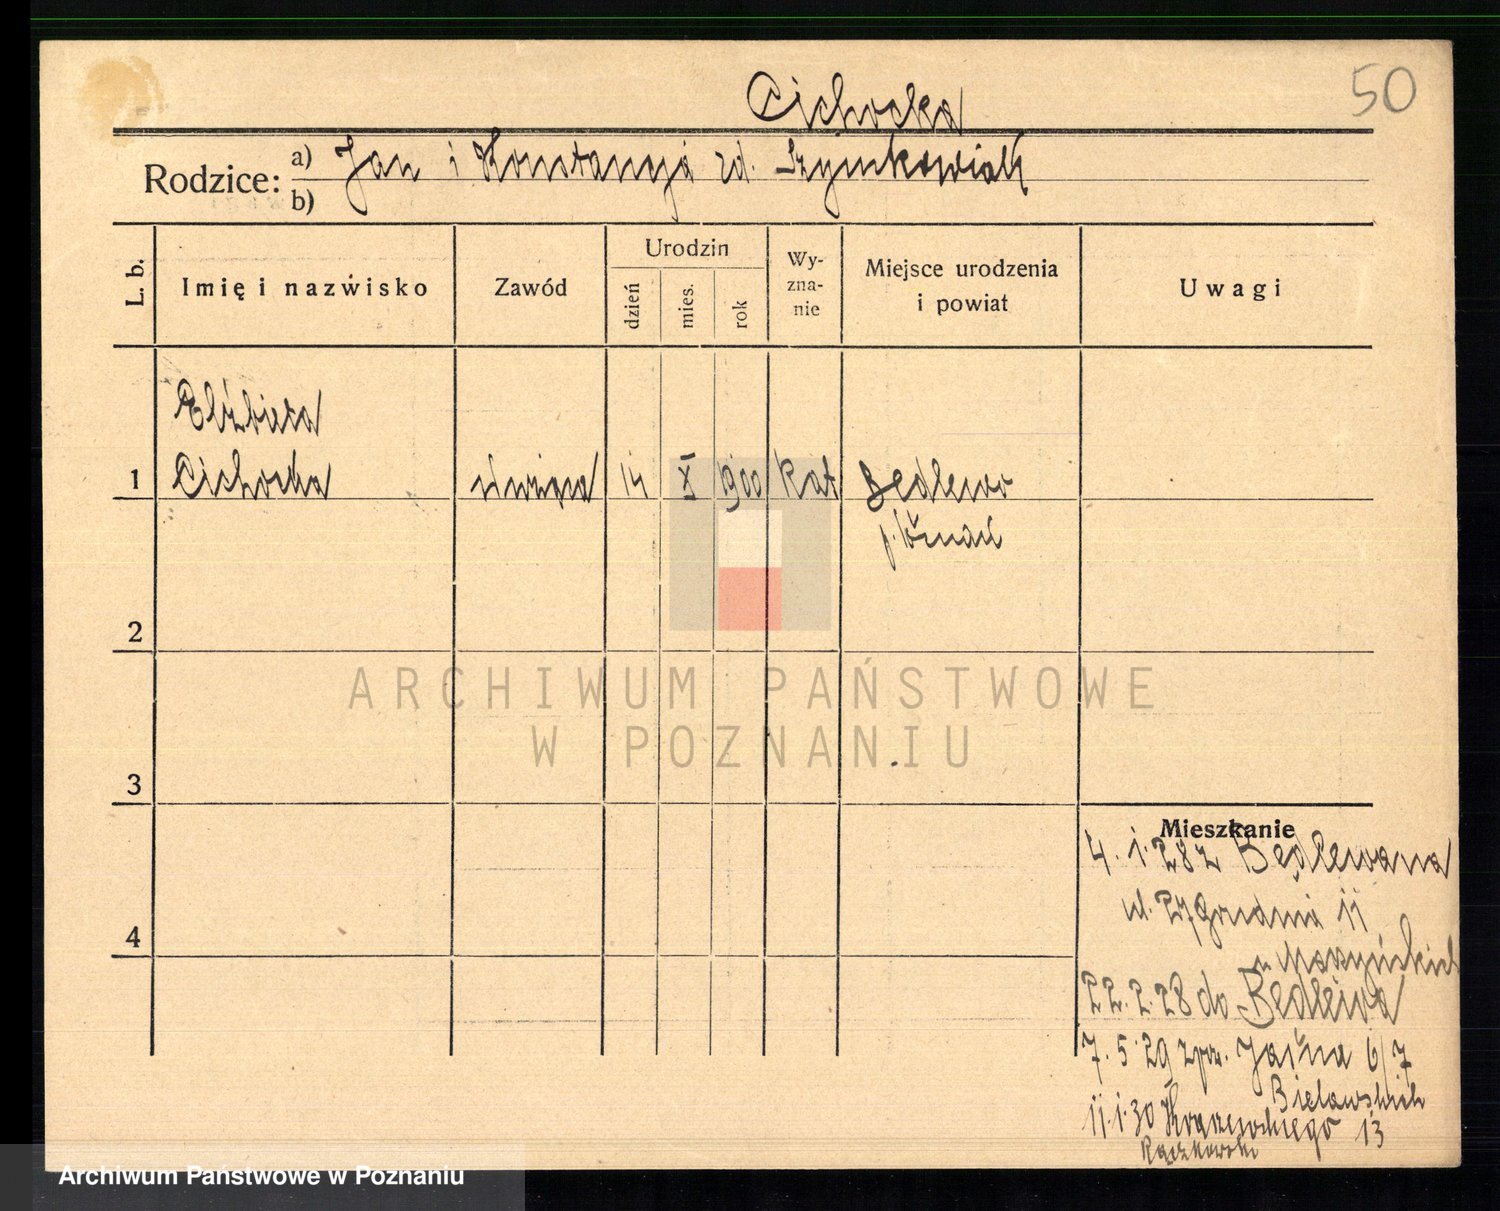 Cichocka
50
Rodzice: a) Jan i Konstancja zd. Szymkowiak
b)
L. b.
Imię i nazwisko
Zawód
Urodzin
dzień
mies.
rok
Wy-
zna-
nie
Miejsce urodzenia
i powiat
Uwagi
Elżbieta
1 Cichocka służąca 14 X 1900 kat Będlewo
p. Poznań
2
3
4
Mieszkanie
4. 1. 28 z Będlewa na
ul. 27 Grudnia 11
u
22. 2. 28 do Będlewa
7. 5. 29 zpr. Jasna 6/7
Bielawskich
11. 1. 30 Kraszewskiego 13
Rączkowski
ARCHIWUM PAŃSTWOWE
W POZNANIU
Archiwum Państwowe w Poznaniu